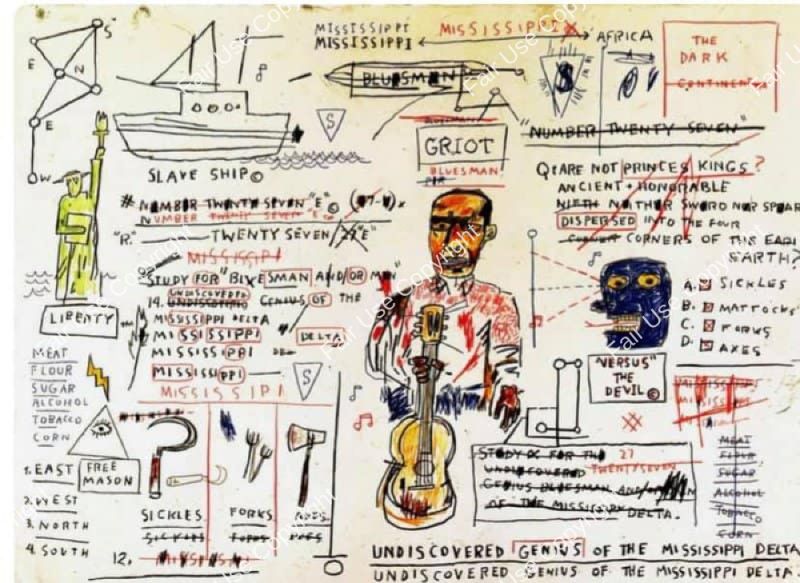 S
E
N
E
W
MISSISSIPPI
MISSISSIPPI
MISSISSIPPI
AFRICA
THE
DARK
CONTINENT
BLUESMAN
S
S
BLUESMAN
GRIOT
BLUESMAN
"NUMBER TWENTY SEVEN"
SLAVE SHIP©
# NUMBER TWENTY SEVEN "E" ©
NUMBER TWENTY SEVEN "E"
"R." TWENTY SEVEN "E"
MISSISSIPI
"STUDY FOR" BLUESMAN AND/OR MAN"
UNDISCOVERED
14. UNDISCOVERED GENIUS OF THE
MISSISSIPPI DELTA
MISSISSIPPI DELTA
MISSISSIPPI DE
MISSISSIPPI
MISSISSIPI
S
LIBERTY
MEAT
FLOUR
SUGAR
ALCOHOL
TOBACCO
CORN
1. EAST
2. WEST
3. NORTH
4. SOUTH
FREE
MASON
SICKLES
SICKLES
FORKS
FORKS
12.
Q: ARE NOT PRINCES KINGS?
ANCIENT + HONORABLE
NIETH NEITHER SWORD NOR SPEAR
DISPERSED INTO THE FOUR
CORNER CORNERS OF THE
EARTH?
A. SICKLES
B. MATTOCKS
C. FORKS
D. AXES
"VERSUS"
THE
DEVIL©
MISSISSIPPI
MEAT
FLOUR
SUGAR
ALCOHOL
TOBACCO
CORN
STUDY FOR THE 27
UNDISCOVERED TWENTYSEVEN
GENIUS BLUESMAN AND/OR
OF THE MISSISSIPPI DELTA.
UNDISCOVERED GENIUS OF THE MISSISSIPPI DELTA
UNDISCOVERED GENIUS OF THE MISSISSIPPI DELTA.
Fair Use Copyright